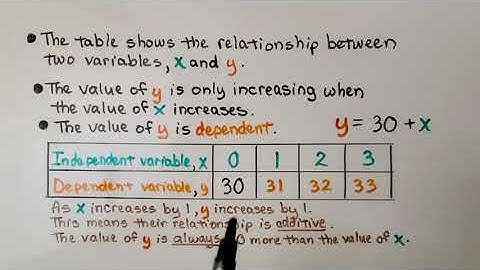 • The table shows the relationship between
two variables, x and y.
• The value of y is only increasing when
the value of x increases.
• The value of y is dependent. y = 30 + x
Independent variable, x 0 1 2 3
Dependent variable, y 30 31 32 33
As x increases by 1, y increases by 1.
This means their relationship is additive.
The value of y is always 0 more than the value of x.